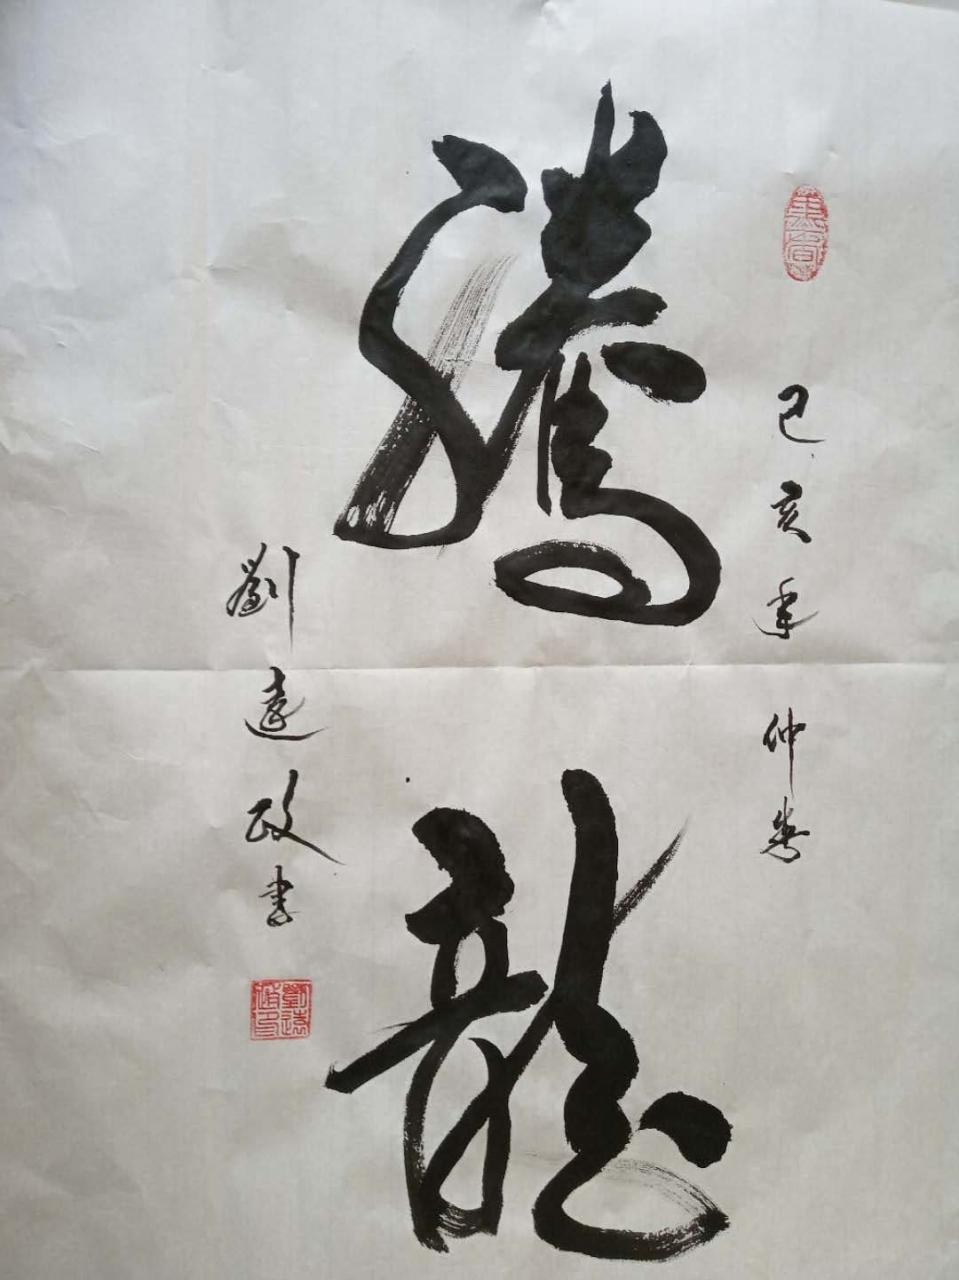 己亥年 仲春
騰龍
劉遠政書
劉遠
政印